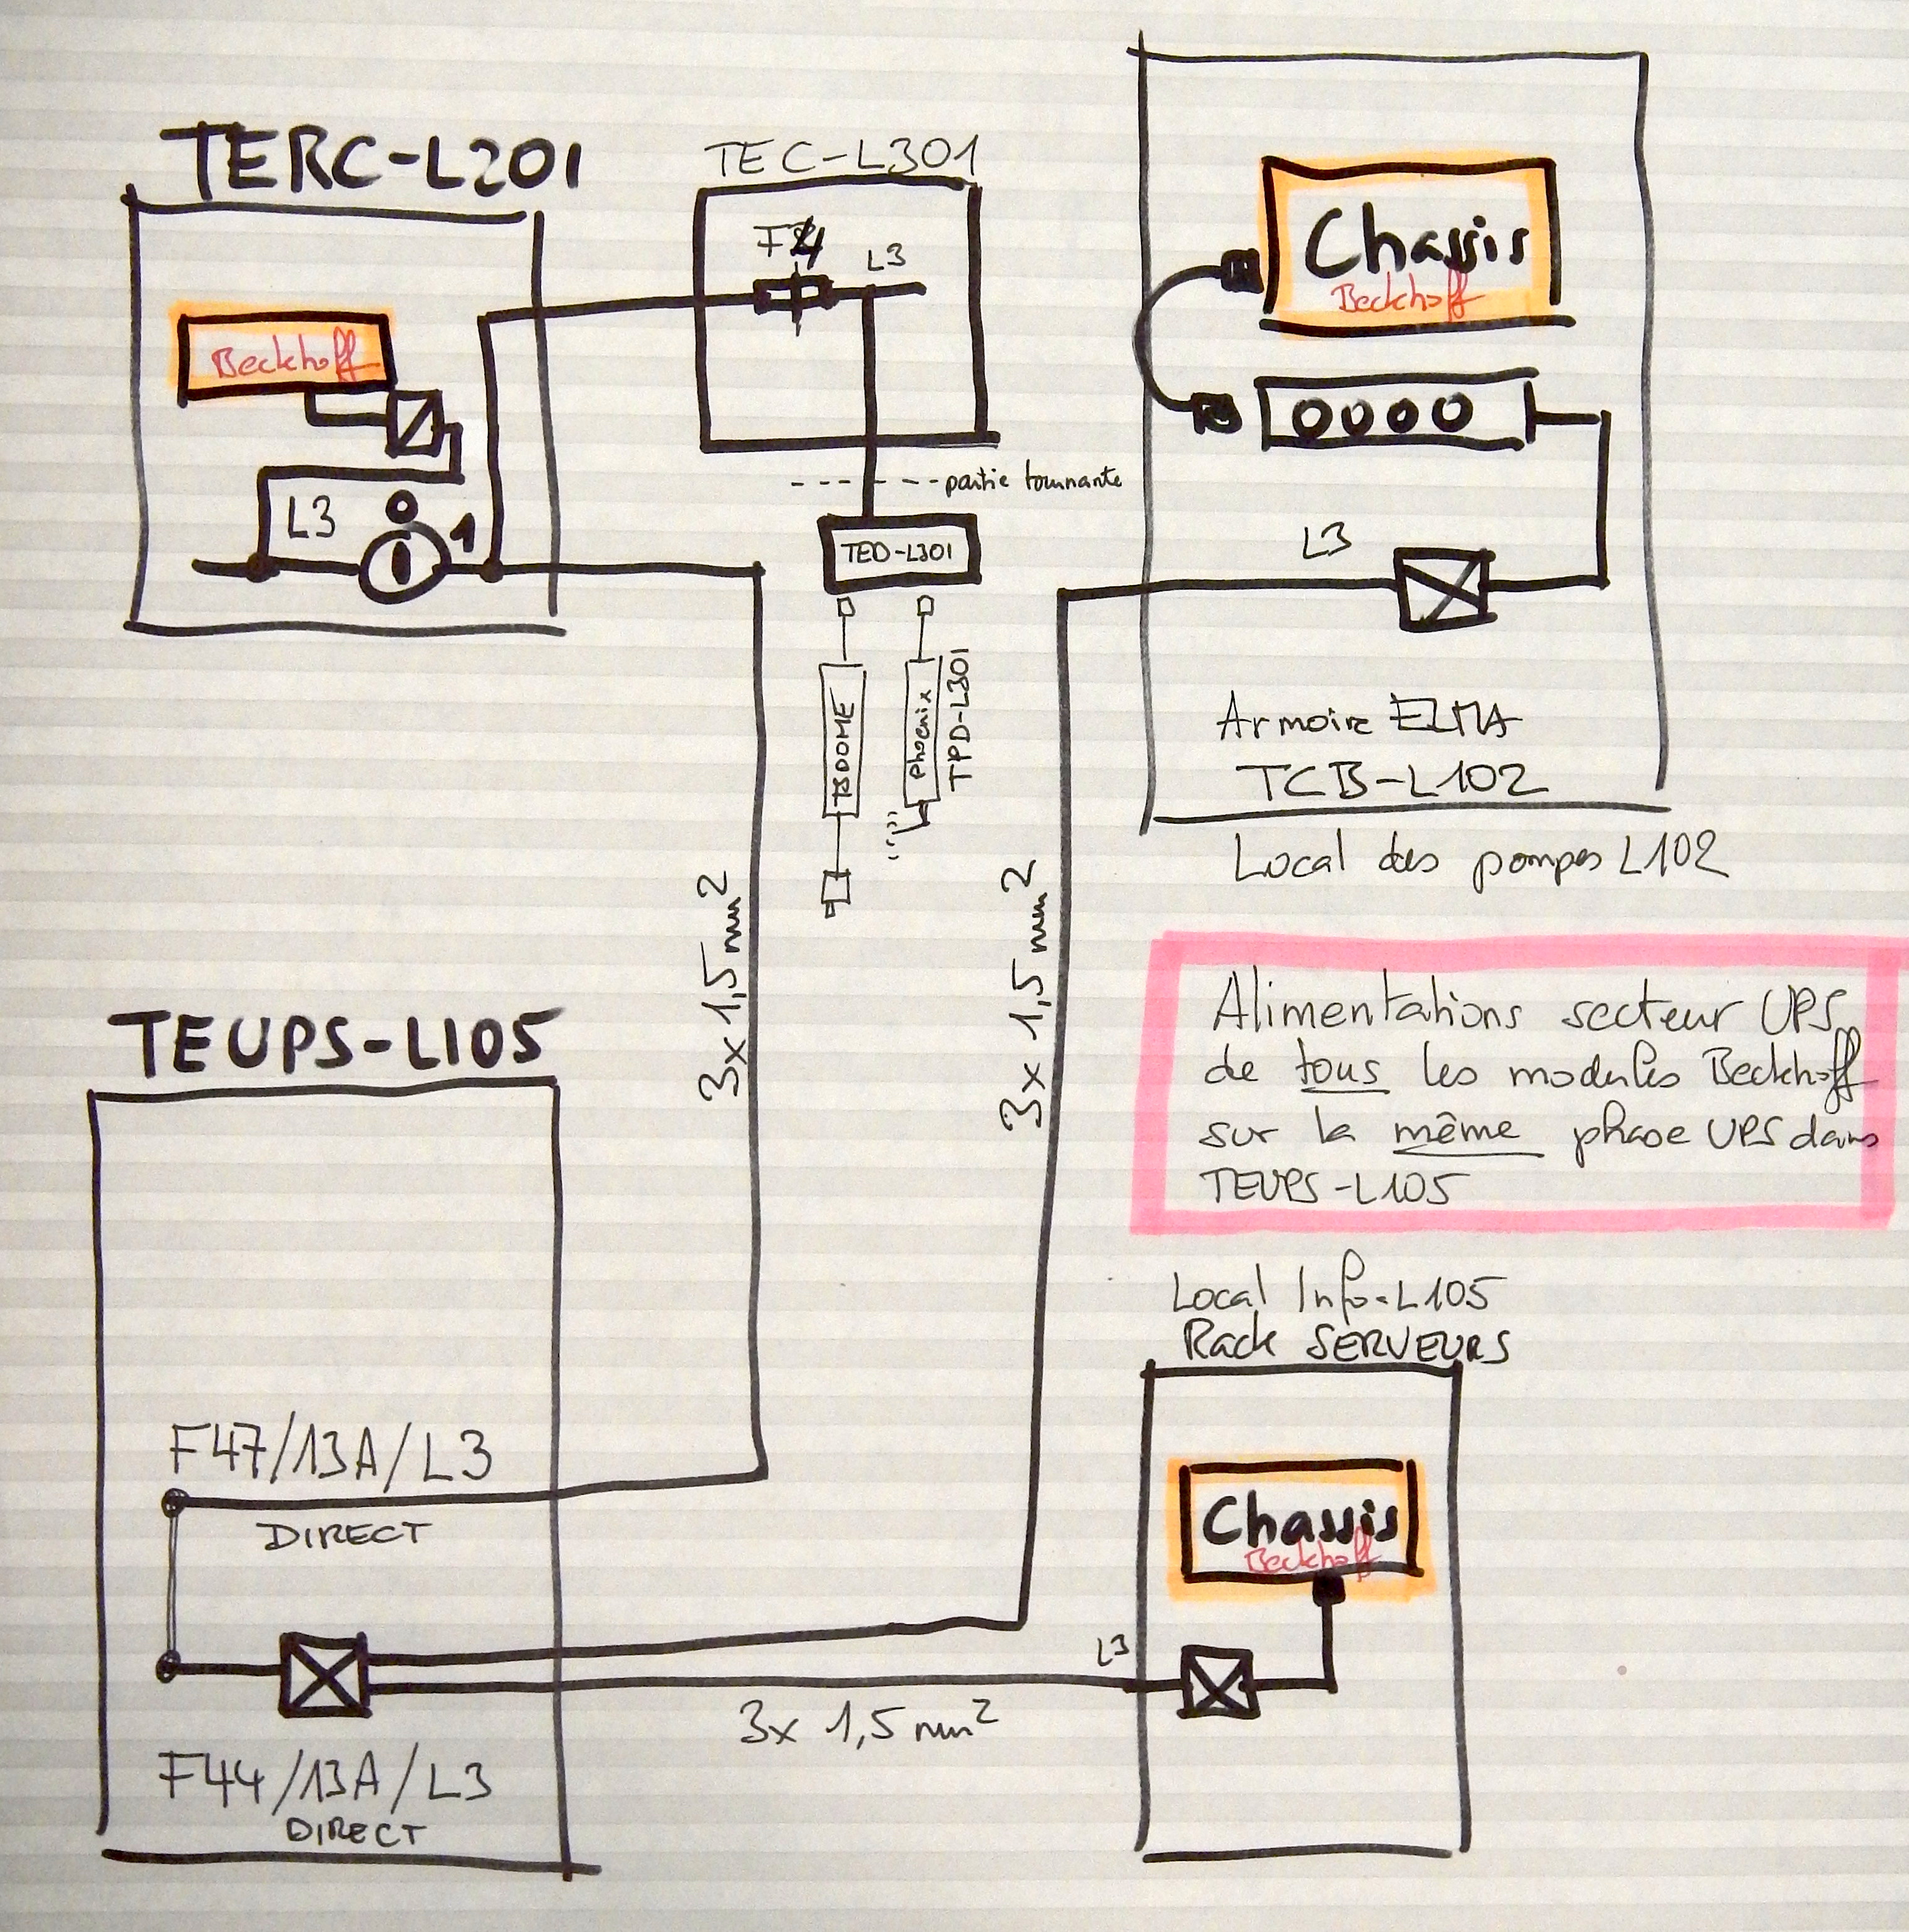 TERC-L201
TEC-L301
L3
Beckhoff
L3
0
1
partie tournante
TED-L301
TBDOME
Phoenix
TPD-L301
Chassis
Beckhoff
L3
Armoire ELMA
TCB-L102
Local des pompes L102
3x1,5mm2
3x1,5mm2
Alimentations secteur UPS
de tous les modules Beckhoff
sur la même phase UPS dans
TEUPS-L105
TEUPS-L105
F47/13A/L3
DIRECT
F44/13A/L3
DIRECT
3x 1,5mm2
Local Info-L105
Rack SERVEURS
Chassis
Beckhoff
L3